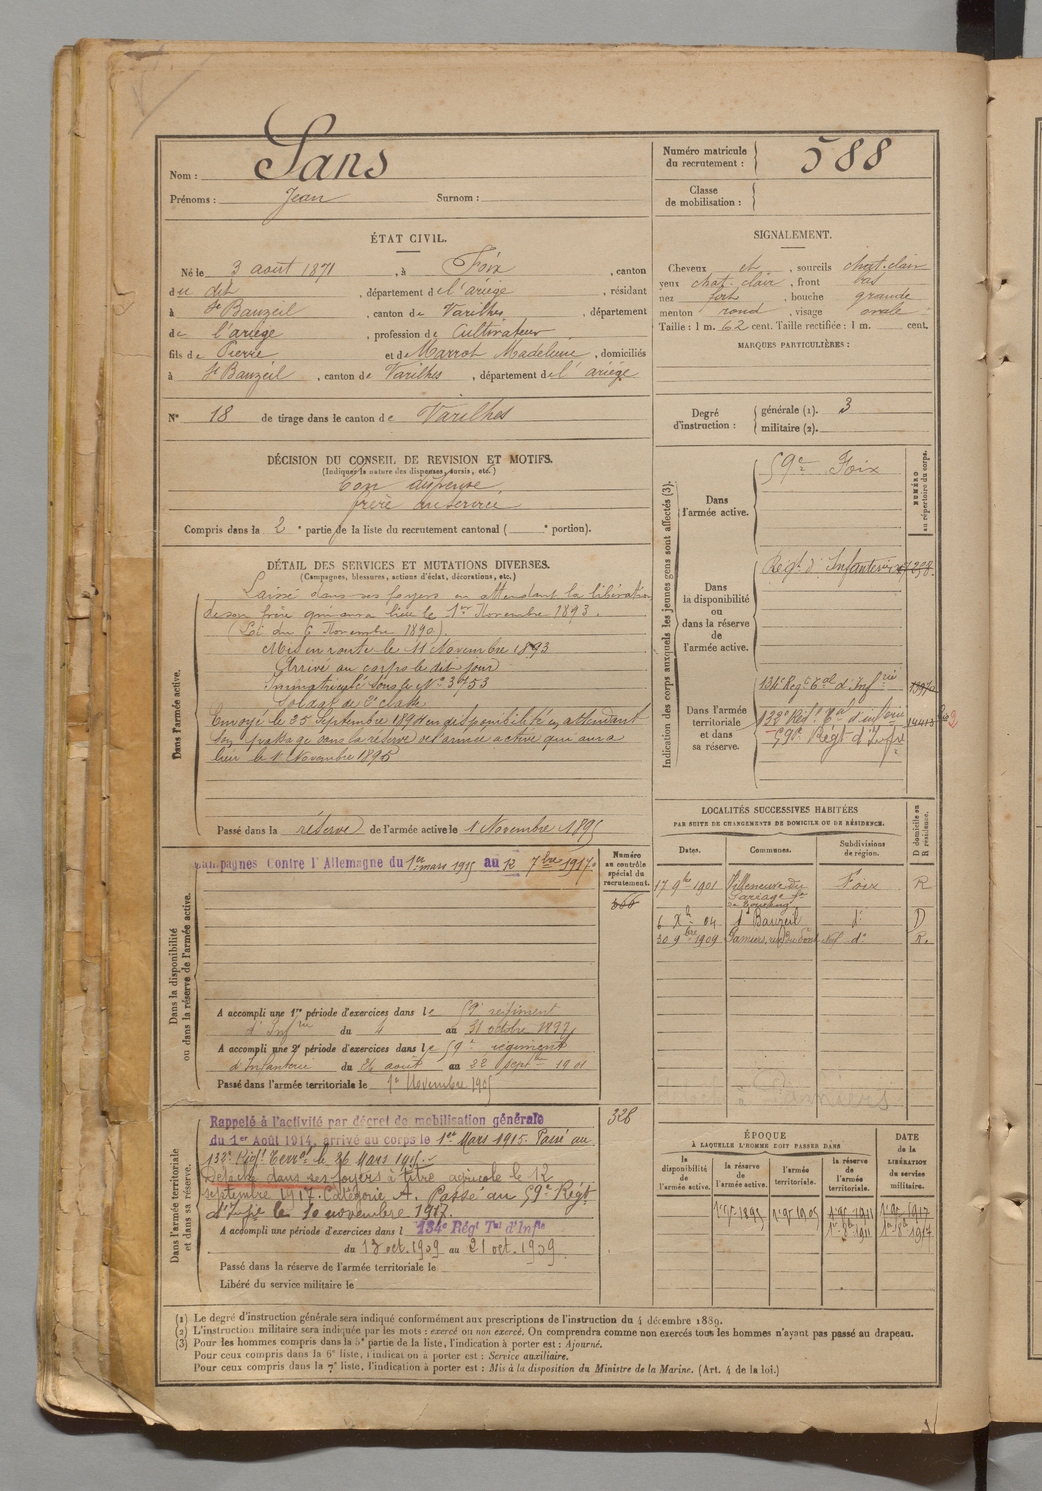 Nom : Sans
Prénoms : Jean Surnom :
Numéro matricule du recrutement : 588
Classe de mobilisation :
ÉTAT CIVIL.
Né le 3 août 1871, à Foix, canton
du dit, département de l'ariège, résidant
à St Bauzeil, canton de Varilhes, département
de l'ariège, profession de Cultivateur
fils de Pierre et de Marrot Madeleine, domiciliés
à St Bauzeil, canton de Varilhes, département de l'ariège
N° 18 de tirage dans le canton de Varilhes
SIGNALEMENT.
Cheveux et, sourcils chat. clair
yeux chat. clair, front bas
nez fort, bouche grande
menton rond, visage ovale
Taille : 1 m. 62 cent. Taille rectifiée : 1 m. cent.
MARQUES PARTICULIÈRES :
Degré d'instruction : générale (1). 3
militaire (2).
DÉCISION DU CONSEIL DE REVISION ET MOTIFS.
(Indiquer la nature des dispenses, sursis, etc.)
bon dispensé
frère au service
Compris dans la 2e partie de la liste du recrutement cantonal ( e portion).
DÉTAIL DES SERVICES ET MUTATIONS DIVERSES.
(Campagnes, blessures, actions d'éclat, décorations, etc.)
Dans l'armée active.
Laissé dans ses foyers en attendant la libération
de son frère qui aura lieu le 1er Novembre 1893.
(Loi du 6 Novembre 1890).
Mis en route le 11 Novembre 1893
Arrivé au corps le dit jour
Immatriculé sous le N° 3753
Soldat de 2e classe
Envoyé le 25 Septembre 1894 en disponibilité en attendant
son passage dans la réserve de l'armée active qui aura
lieu le 1 Novembre 1895
Passé dans la réserve de l'armée active le 1 Novembre 1895
Indication des corps auxquels les jeunes gens sont affectés (3).
NUMÉRO au répertoire du corps.
Dans l'armée active.
59e Foix
Dans la disponibilité ou dans la réserve de l'armée active.
Régt d'Infanterie
Dans l'armée territoriale et dans sa réserve.
134e Régt Tal d'Infrie
132e Régt Tal d'infrie
59e Régt d'Infie
LOCALITÉS SUCCESSIVES HABITÉES
PAR SUITE DE CHANGEMENTS DE DOMICILE OU DE RÉSIDENCE.
D domicile ou R résidence.
Dates. Communes. Subdivisions de région.
17 9bre 1901 Villeneuve du Pareage Foix R
6 Xbre 04 St Bauzeil do D
30 9bre 1909 Pamiers, do R.
Dans la disponibilité ou dans la réserve de l'armée active.
Campagnes Contre l'Allemagne du 1er mars 1915 au 12 7bre 1917.
Numéro au contrôle spécial du recrutement.
A accompli une 1re période d'exercices dans le 59e régiment
d'Infrie du 4 au 31 octobre 1897
A accompli une 2e période d'exercices dans le 59e régiment
d'Infanterie du août au 22 Septre 1901
Passé dans l'armée territoriale le 1er Novembre 1905
Dans l'armée territoriale et dans sa réserve.
328
Rappelé à l'activité par décret de mobilisation générale
du 1er Août 1914, arrivé au corps le 1er Mars 1915. Passé au
132e Régt Terral le 26 Mars 1915.
Détaché dans ses foyers à titre agricole le 12
septembre 1917. Catégorie A. Passé au 59e Régt
d'Infie le 10 novembre 1917.
A accompli une période d'exercices dans l 134e Régt Tal d'Infie
du 13 oct. 1909 au 21 oct. 1909
Passé dans la réserve de l'armée territoriale le
Libéré du service militaire le
ÉPOQUE
À LAQUELLE L'HOMME DOIT PASSER DANS
DATE DE LA LIBÉRATION du service militaire.
la disponibilité de l'armée active. la réserve de l'armée active. l'armée territoriale. la réserve de l'armée territoriale.
(1) Le degré d'instruction générale sera indiqué conformément aux prescriptions de l'instruction du 4 décembre 1889.
(2) L'instruction militaire sera indiquée par les mots : exercé ou non exercé. On comprendra comme non exercés tous les hommes n'ayant pas passé au drapeau.
(3) Pour les hommes compris dans la 5e partie de la liste, l'indication à porter est : Ajourné.
Pour ceux compris dans la 6e liste, l'indication à porter est : Service auxiliaire.
Pour ceux compris dans la 7e liste, l'indication à porter est : Mis à la disposition du Ministre de la Marine. (Art. 4 de la loi.)